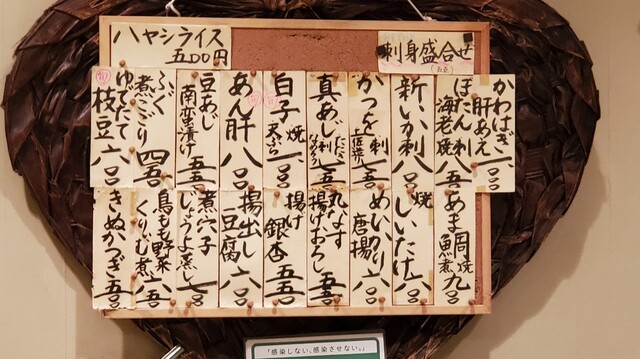 ハヤシライス
五〇〇円
刺身盛合せ
かわはぎ
肝あえ 一、〇〇〇
ぼたん刺
海老焼 八五〇
新いか刺 八〇〇
かつを刺
土佐造り
真あじ刺
たたき
なめろう
白子焼
天ぷら 一、〇〇〇
あん肝 八〇〇
豆あじ
南蛮漬け 五五〇
ふぐ
煮こごり 四五〇
ゆでたて
枝豆 六〇〇
あま鯛焼
煮 九〇〇
焼しいたけ 八〇〇
めいたかれい
唐揚
丸なす
揚げおろし 五五〇
揚げ銀杏 五五〇
揚出し
豆腐 六〇〇
煮穴子
じょうよ蒸し 七〇〇
鳥もも野菜
くりーむ煮 六五〇
きぬかつぎ 五〇〇
「感染しない、感染させない。」